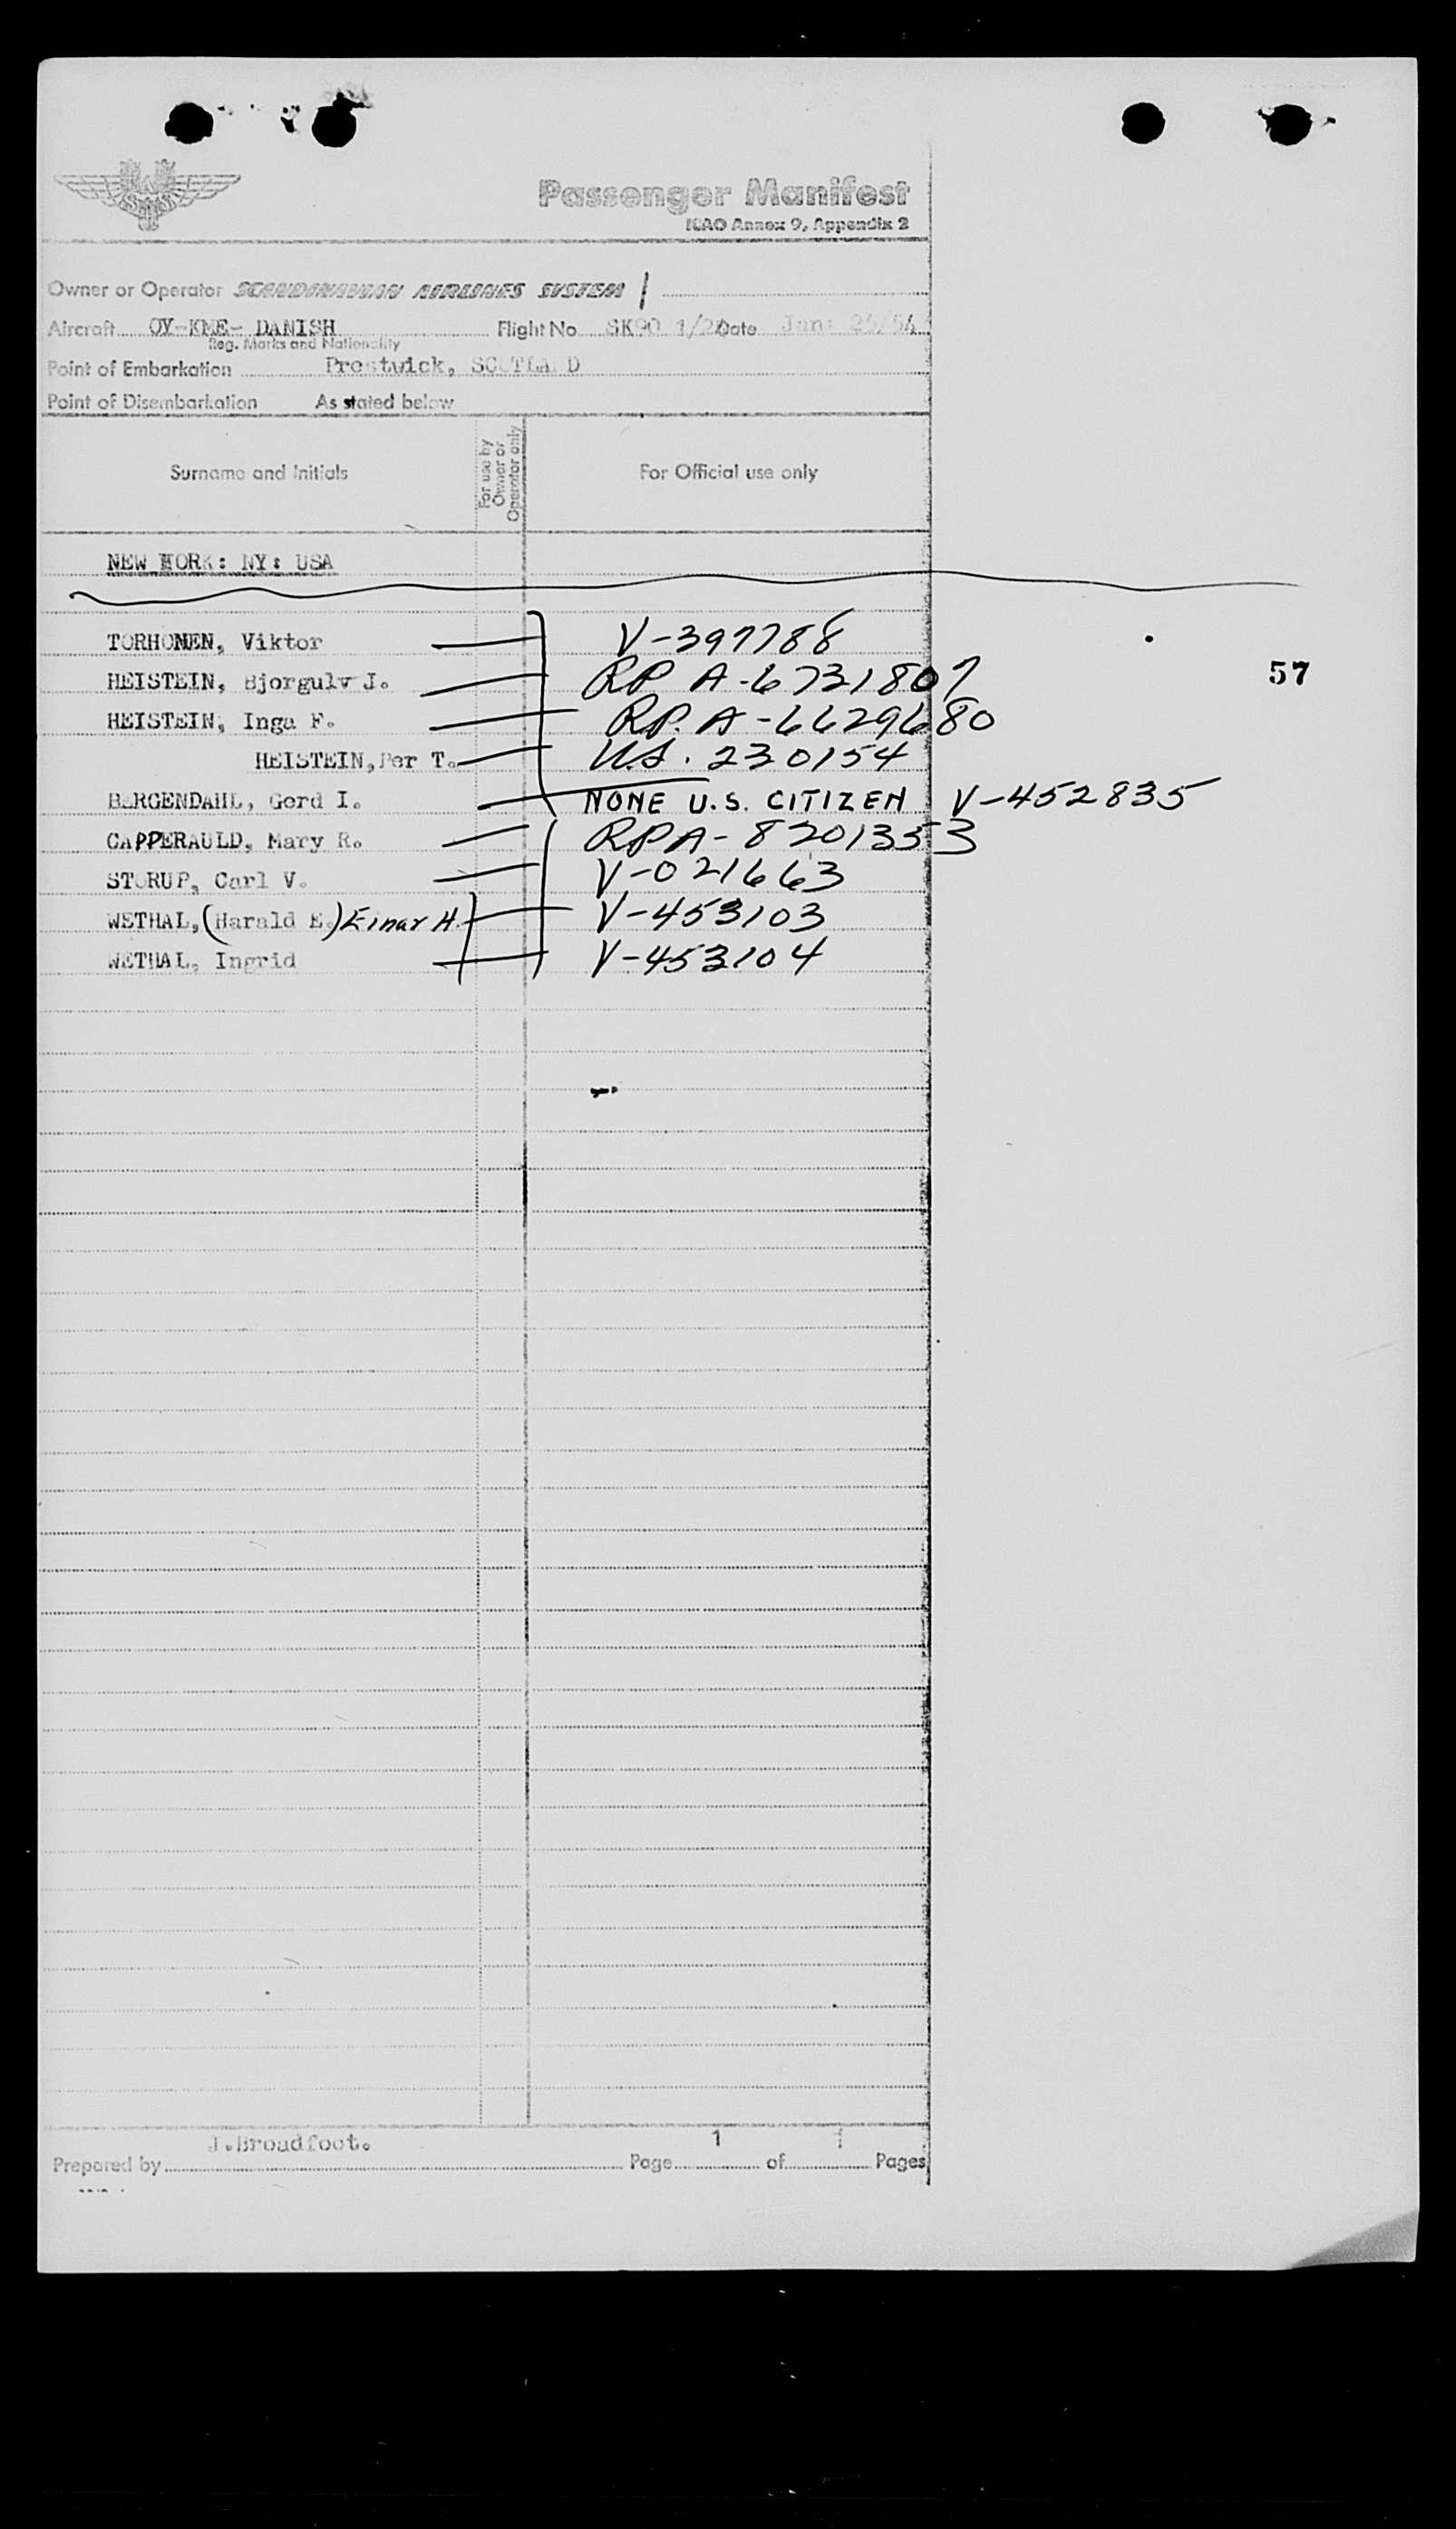 SAS
Passenger Manifest
ICAO Annex 9, Appendix 2
Owner or Operator SCANDINAVIAN AIRLINES SYSTEM
Aircraft OY-KME- DANISH Flight No SK90 Date Jan:
Reg. Marks and Nationality
Point of Embarkation Prestwick, SCOTLAND
Point of Disembarkation As stated below
Surname and Initials For use by Owner or Operator only For Official use only
NEW YORK: NY: USA
TORHONEN, Viktor V-397788
57
HEISTEIN, Bjorgulv J. RP A-6731807
HEISTEIN, Inga F. RP. A-6629680
HEISTEIN, Per T. U.S. 230154
BERGENDAHL, Gerd I. NONE U.S. CITIZEN V-452835
CAPPERAULD, Mary R. RPA-8201353
STORUP, Carl V. V-021663
WETHAL, (Harald E.) Einar H. V-453103
WETHAL, Ingrid V-453104
J.Broadfoot.
Prepared by Page 1 of 1 Pages